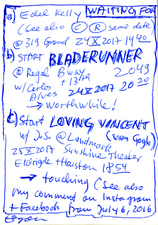 a) Edel Kelly WAITING FOR
(See also © ® same date
@ 319 Grand 24 X 2017 1940
b) START BLADERUNNER
@ Regal B'way 2049
w/ Carlos + 13th
24 X 2017 2020
→ worthwhile!
c) START LOVING VINCENT
w/ J.S. @ Landmark (Van Gogh)
25 X 2017 Sunshine Theater
Eldridge Houston 1854
→ touching (See also
my comment on Instagram
+ Facebook from July 6, 2016